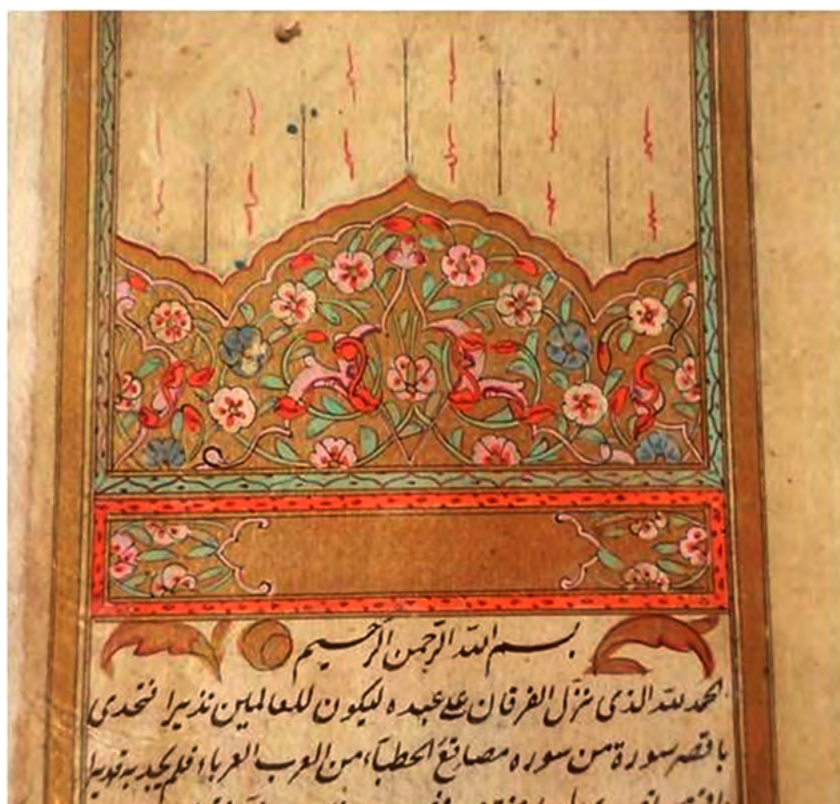 بسم الله الرحمن الرحيم
الحمد لله الذى نزل الفرقان على عبده ليكون للعالمين نذيرا فتحدى
باقصر سورة من سوره مصاقع الخطباء من العرب العرباء فلم يجد به قديرا